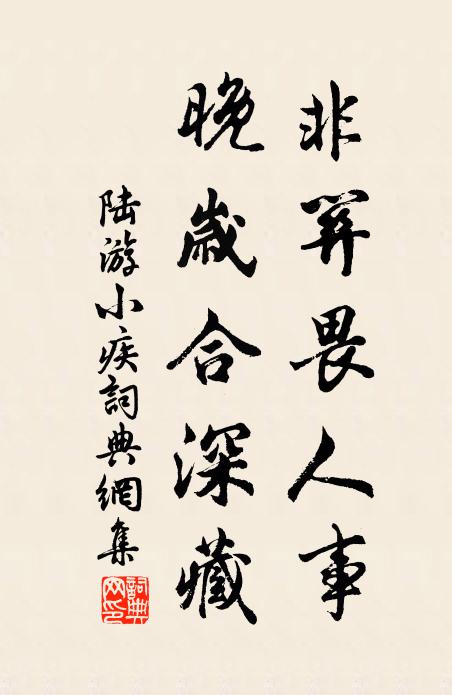 非關畏人事
晚歲合深藏
陸游小疾詞典網集
詞典网印